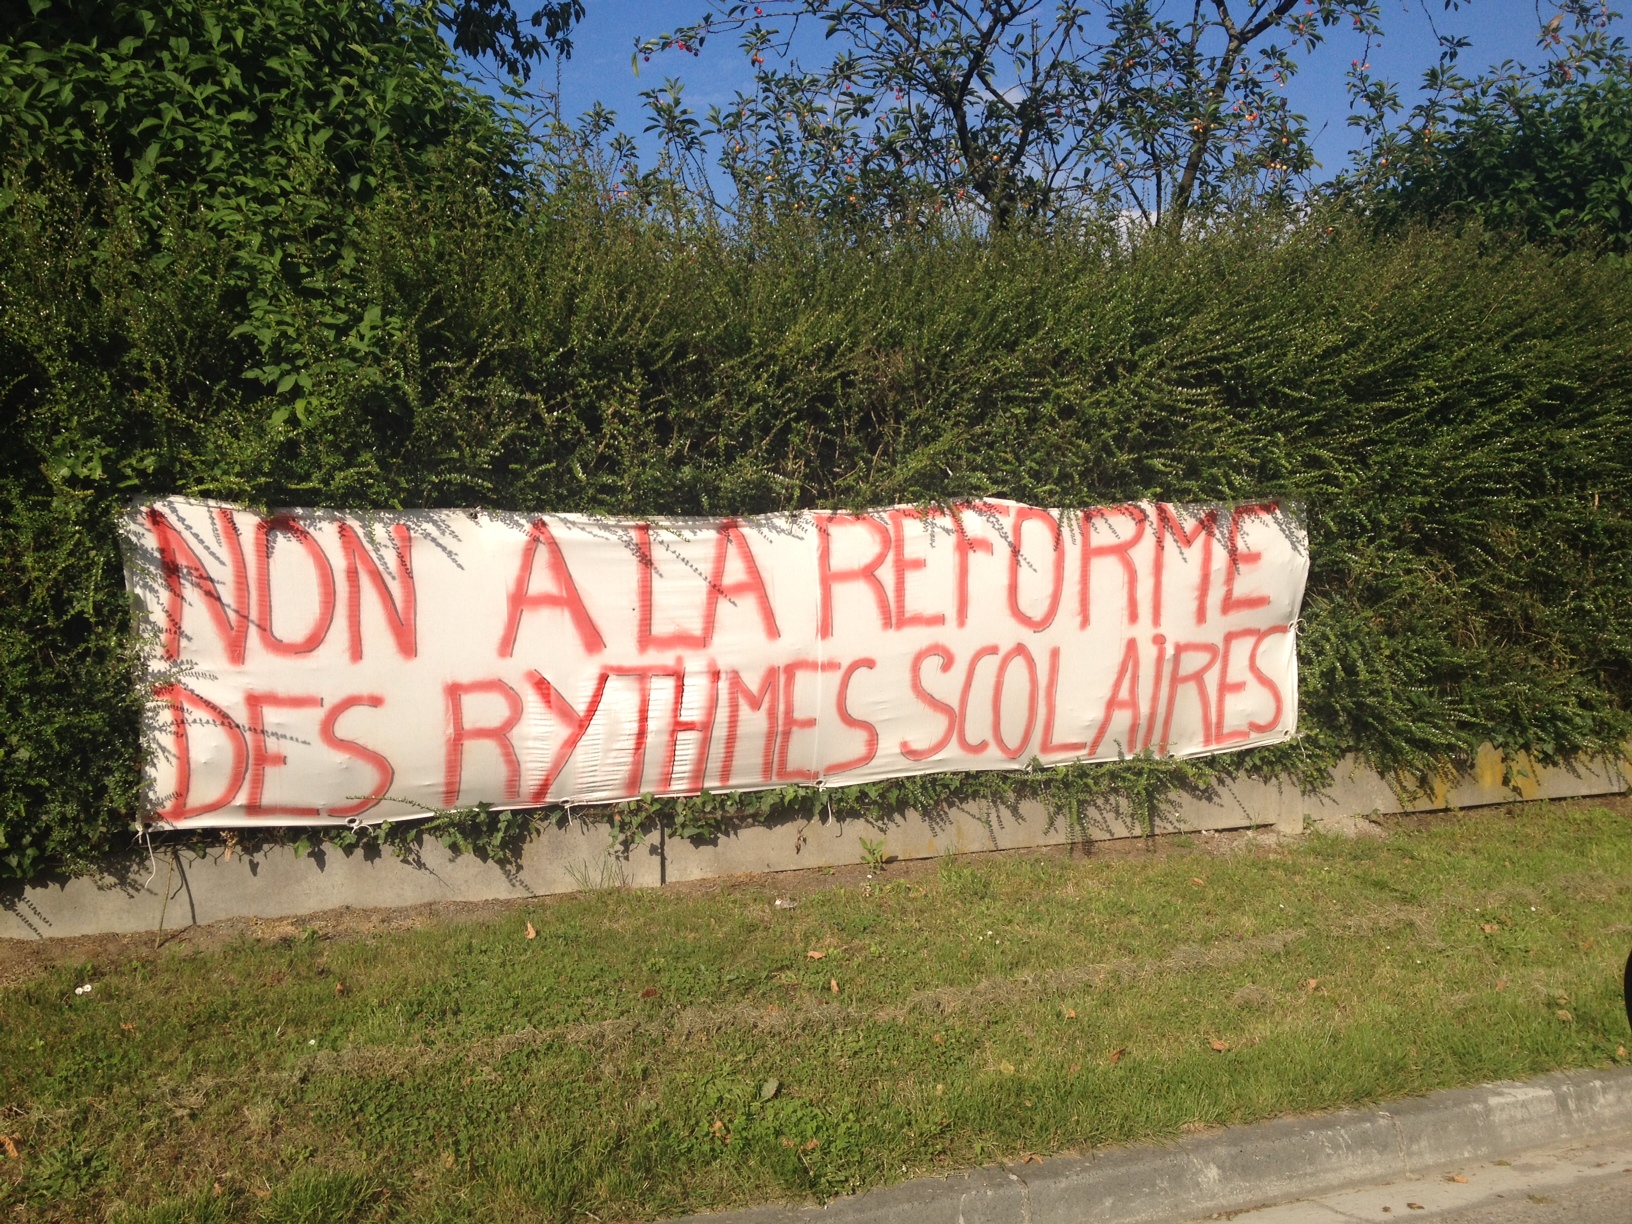 NON A LA REFORME
DES RYTHMES SCOLAiRES